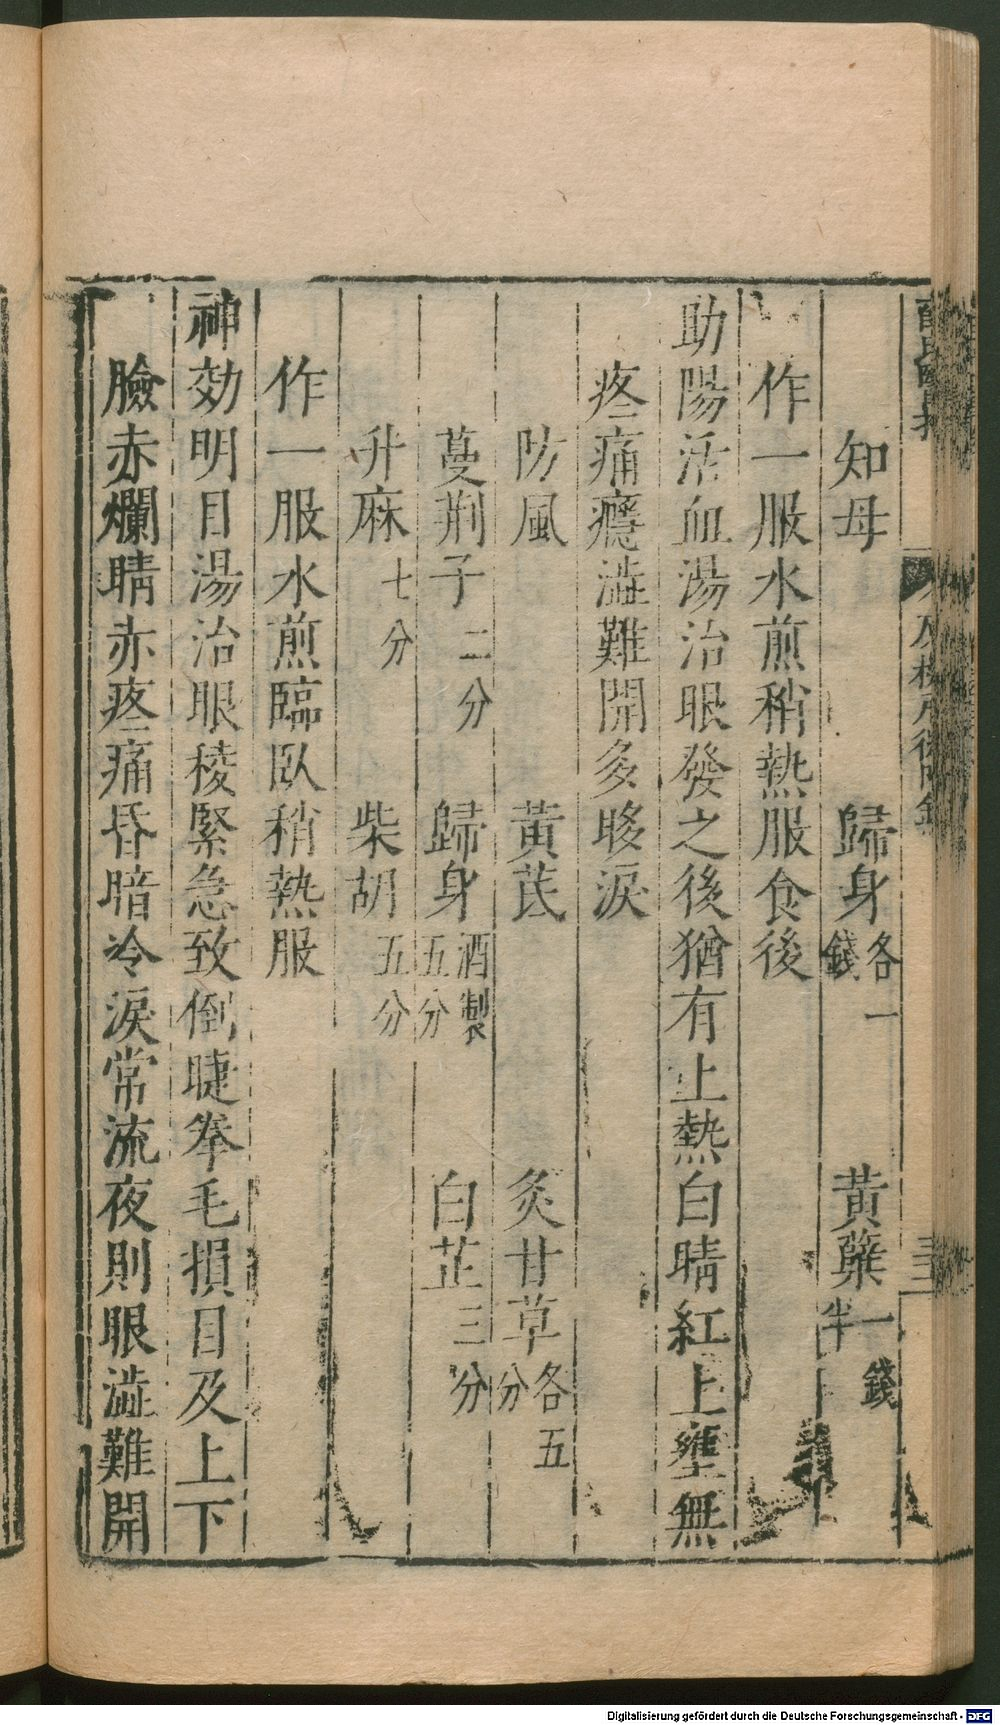 知母　歸身各一錢　黄蘖一錢半
作一服水煎稍熱服食後
助陽活血湯治眼發之後猶有上熱白睛紅上壅無
疼痛癮澁難開多眵淚
防風　黄芪　炙甘草各五分
蔓荆子二分　歸身酒製五分　白芷三分
升麻七分　柴胡五分
作一服水煎臨臥稍熱服
神効明目湯治眼稜緊急致倒睫拳毛損目及上下
臉赤爛睛赤疼痛昏暗冷淚常流夜則眼澁難開
Digitalisierung gefördert durch die Deutsche Forschungsgemeinschaft - DFG